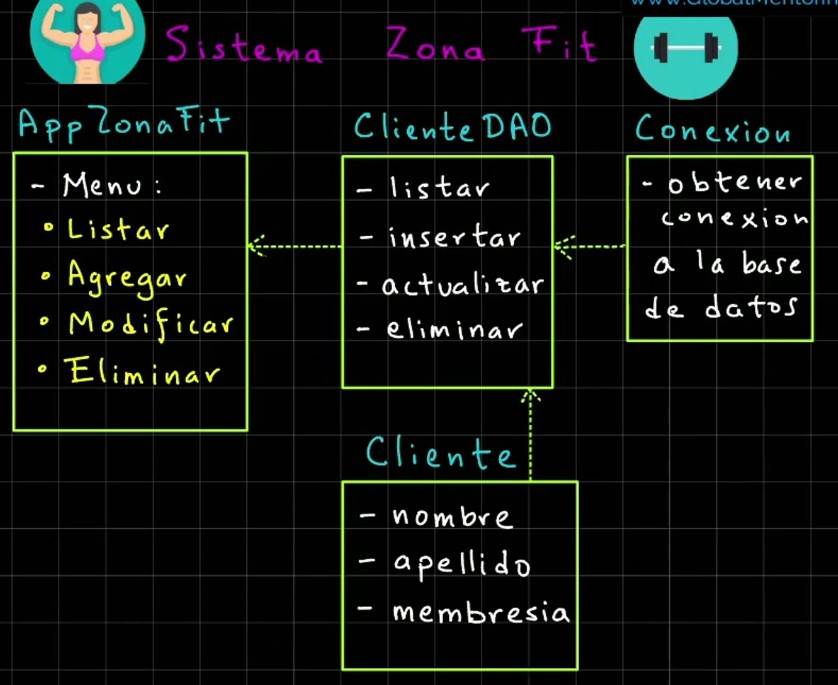 Sistema Zona Fit
AppZonaFit
- Menu:
• Listar
• Agregar
• Modificar
• Eliminar
ClienteDAO
- listar
- insertar
- actualizar
- eliminar
Conexion
- obtener
conexion
a la base
de datos
Cliente
- nombre
- apellido
- membresia